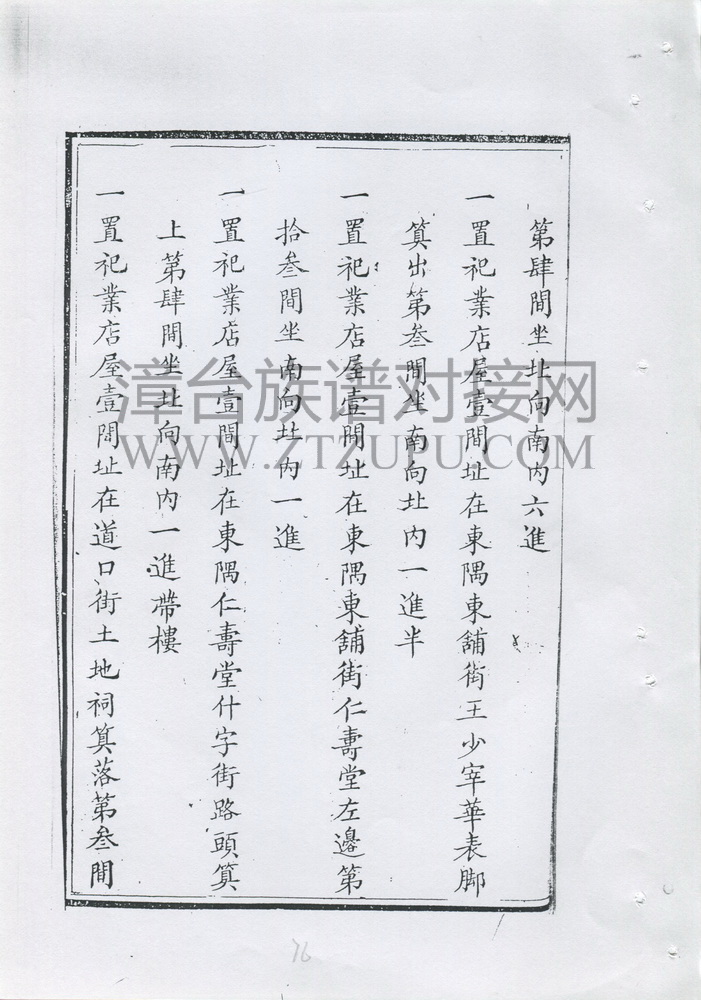 第肆間坐址向南内六進
一置祀業店屋壹間址在東隅東舖街王少宰華表脚
筭出第叁間坐南向址内一進半
一置祀業店屋壹間址在東隅東舖街仁壽堂左邊第
拾叁間坐南向址内一進
一置祀業店屋壹間址在東隅仁壽堂什字街路頭筭
上第肆間坐址向南内一進帶樓
一置祀業店屋壹間址在道口街土地祠筭落第叁間
漳台族谱对接网
WWW.ZTZUPU.COM
76